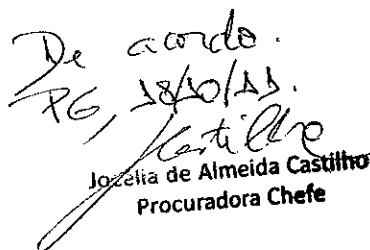 De acordo.
PG, 18/10/11.
JCastilho
Jozélia de Almeida Castilho
Procuradora Chefe